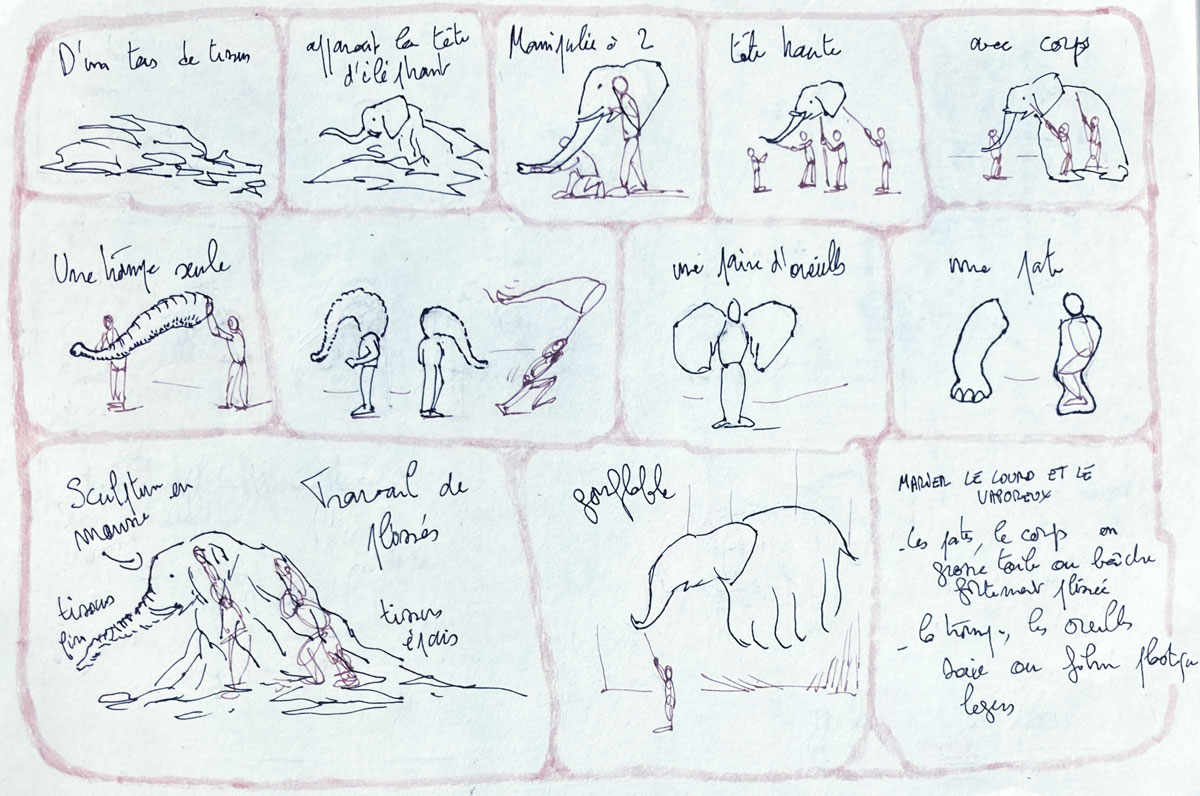 D'un tas de tissus
apparait la tête
d'éléphant
Manipulée à 2
tête haute
avec corps
Une trompe seule
une paire d'oreilles
une pate
Sculpture en
mousse
Travail de
plissés
tissus
fin
tissus
épais
gonflable
MARIER LE LOURD ET LE
VAPOREUX
- Les pates, le corps en
grosse toile ou bâche
fortement plissée
- la trompe, les oreilles
soie ou film plastique
legers